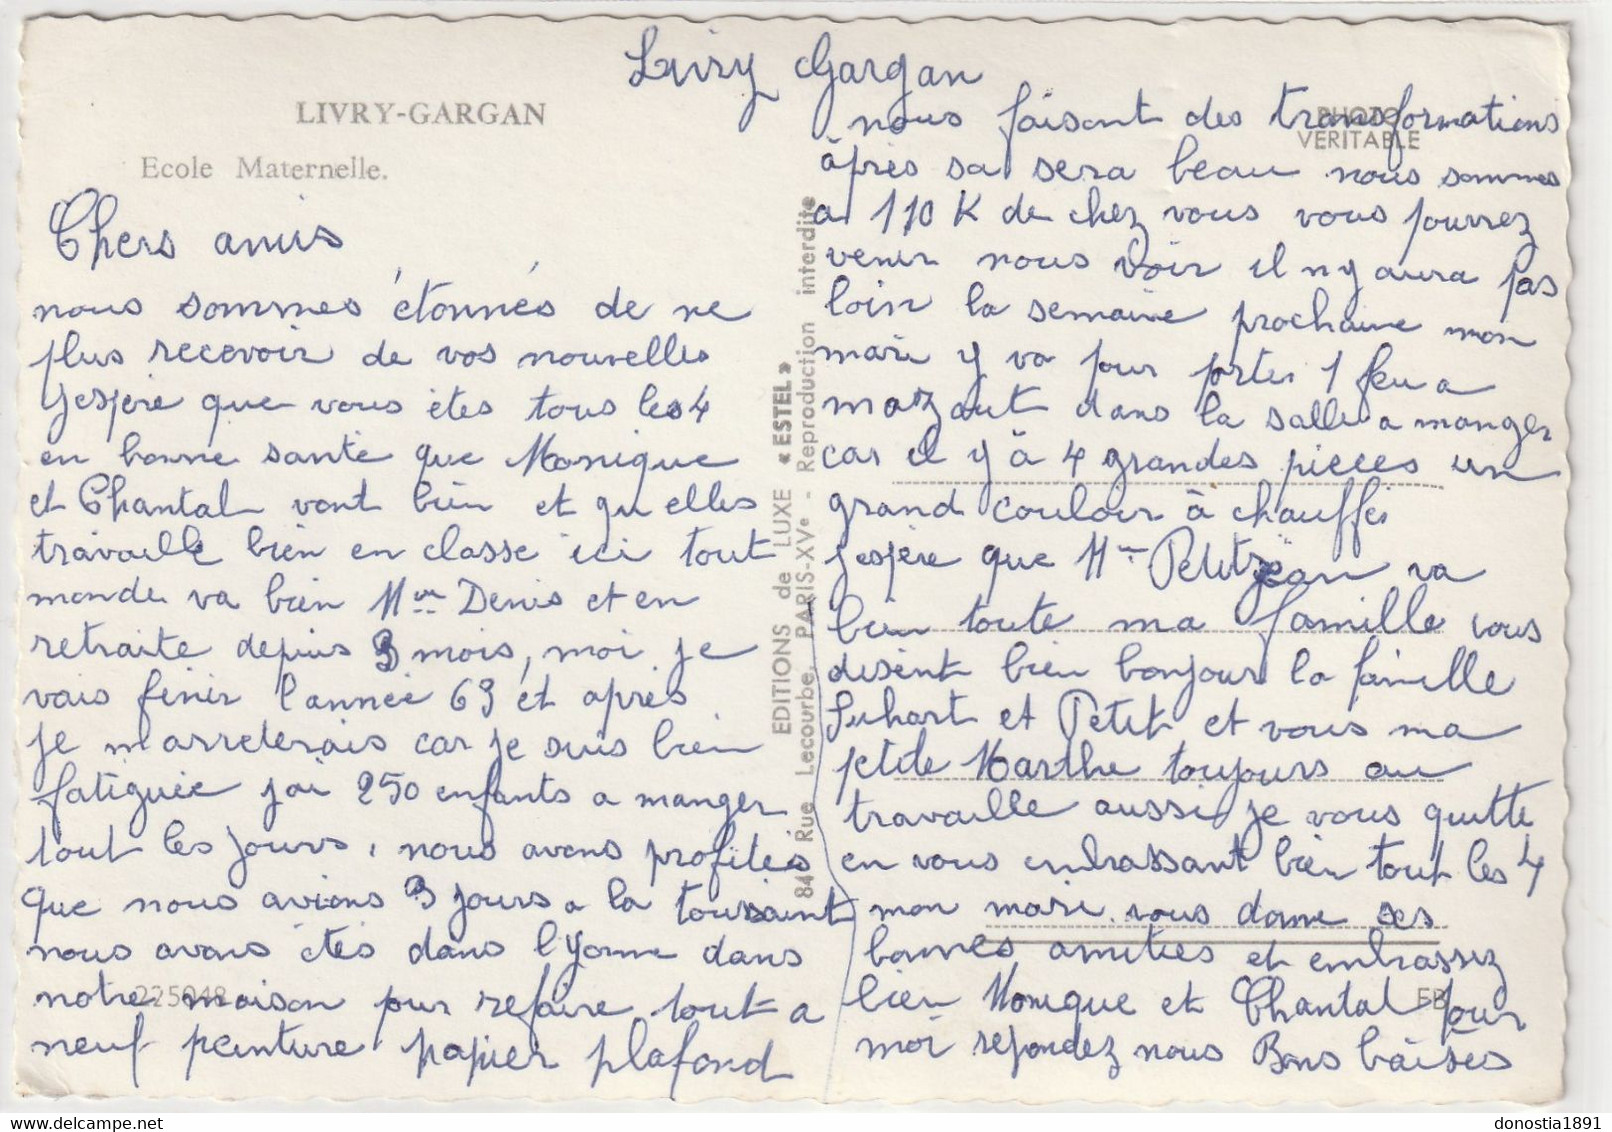 Livry Gargan
LIVRY-GARGAN
Ecole Maternelle.
PHOTO
VERITABLE
Chers amis
nous sommes étonnés de ne
plus recevoir de vos nouvelles
jespère que vous êtes tous les 4
en bonne santé que Monique
et Chantal vont bien et qu elles
travaille bien en classe ici tout
monde va bien Mme Denis et en
retraite depuis 3 mois, moi je
vais finir l'année 69 et après
je m arreterais car je suis bien
fatiguée jai 250 enfants a manger
tout les jours, nous avons profités
que nous avions 3 jours a la toussaint
nous avons étés dans l'yonne dans
notre maison pour refaire tout a
neuf peinture papier plafond
225048
EDITIONS de LUXE « ESTEL »
84, Rue Lecourbe, PARIS-XVe - Reproduction interdite
nous faisont des transformations
âprès sa sera beau nous sommes
a 110 K de chez vous vous pourrez
venir nous voir il n y aura pas
loin la semaine prochaine mon
mari y va pour porter 1 feu a
mazout dans la salle a manger
car il y à 4 grandes pièces un
grand couloir à chauffé
jespère que Mme Petitjean va
bien toute ma famille vous
disent bien bonjour la famille
Suhart et Petit et vous ma
petite Marthe toujours au
travaille aussi je vous quitte
en vous embrassant bien tout les 4
mon mari vous donne ses
bonnes amitiés et embrassez
bien Monique et Chantal pour
moi repondez nous Bons baisés
EB
donostia1891